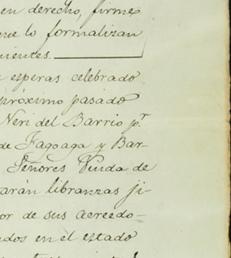 en derecho, firme
ne lo formalizan
uientes.
esperas celebrado
próximo pasado
Neri del Barrio p.r
de Fagoaga y Bar-
Señores Viuda de
aran libranzas ji-
or de sus acreedo-
dos en el estado